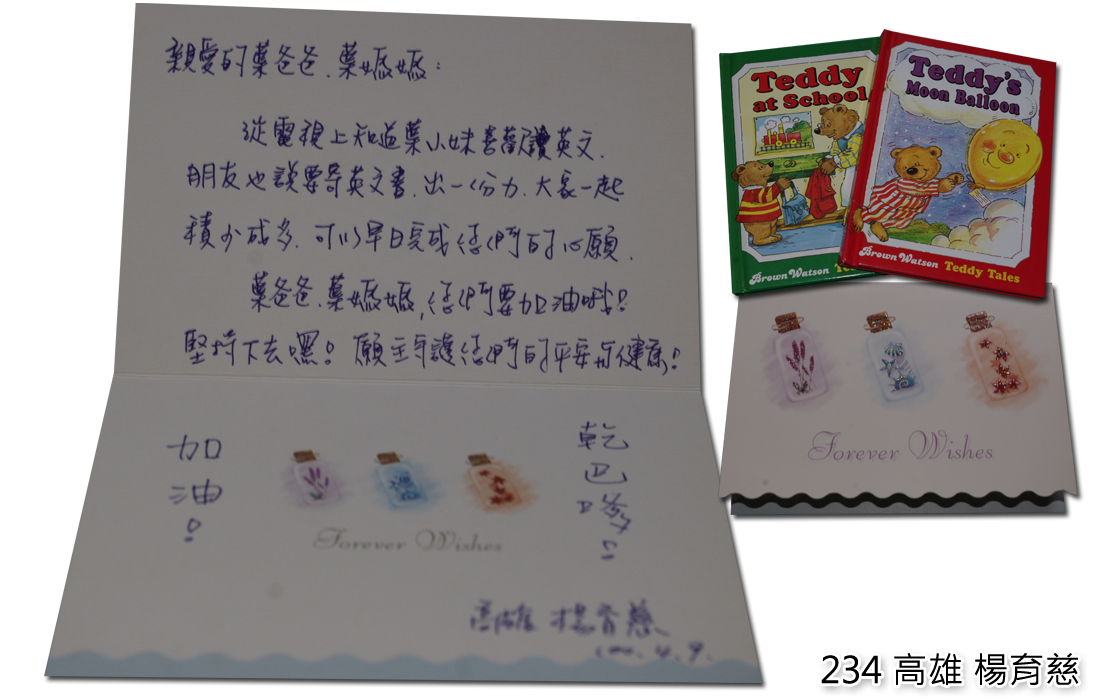 親愛的葉爸爸、葉媽媽：
從電視上知道葉小妹喜歡讀英文，
朋友也說要寄英文書，出一份力，大家一起
積少成多，可以早日完成你們的心願。
葉爸爸、葉媽媽，你們要加油哦！
堅持下去嘿！願主守護你們的平安與健康！
加油！
乾巴
Forever Wishes
高雄 楊育慈
100.4.9.
Teddy
at School
Brown Watson
Teddy's
Moon Balloon
Brown Watson Teddy Tales
Forever Wishes
234 高雄 楊育慈